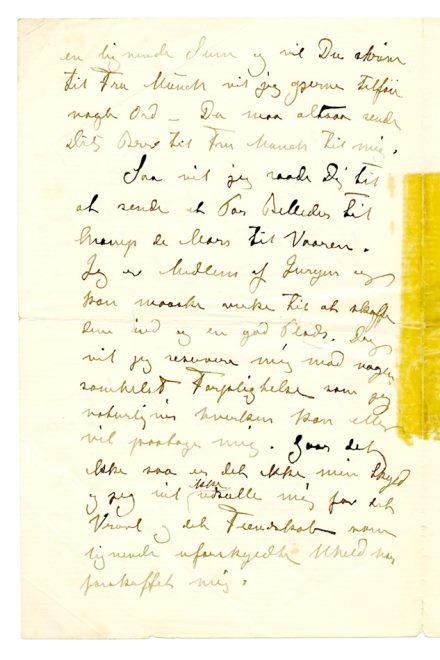 en lignende Sum og vil Du skrive
til Fru Munch vil jeg gjerne tilføie
nogle Ord – Du maa altsaa sende
Dit Brev til Fru Munch til mig.
Saa vil jeg raade Dig til
at sende et Par Billeder til
Champs de Mars til Vaaren.
Jeg er Medlem af Juryen og
kan maaske virke til at skaffe
dem ind og en god Plads. Dog
vil jeg reservere mig mod nogen
somhelst Forpligtelse som jeg
naturligvis hverken kan eller
vil paatage mig. Gaar det
ikke saa er det ikke min Skyld
og jeg vil ikke udsætte mig for det
Vrøvl og det Fiendskab som
lignende uforskyldte Uheld har
forskaffet mig.